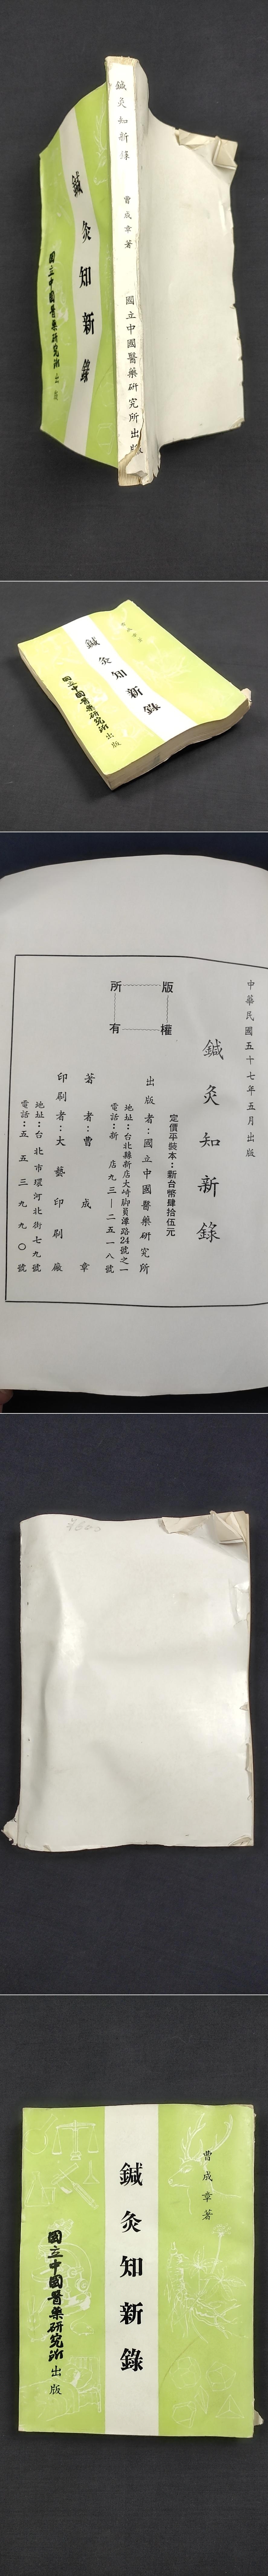 鍼灸知新錄
曹成章著
國立中國醫藥研究所出版
鍼灸知新錄
國立中國醫藥研究所出版
曹成章著
鍼灸知新錄
國立中國醫藥研究所出版
中華民國五十七年五月出版
鍼灸知新錄
版權所有
定價平裝本：新台幣肆拾伍元
出版者：國立中國醫藥研究所
地址：台北縣新店大崎脚員潭路24號之一
電話：新店九三—二五一八號
著者：曹成章
印刷者：大藝印刷廠
地址：台北市環河北街七九號
電話：五五三九九〇號
曹成章著
鍼灸知新錄
國立中國醫藥研究所出版